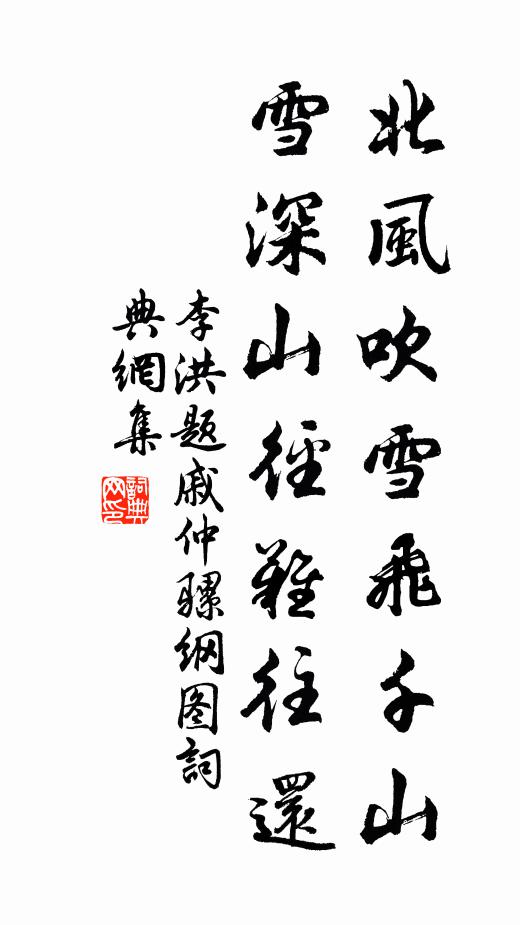 北風吹雪飛千山
雪深山徑難往還
李洪题戚仲骡纲图詞
典網集
詞典
网印